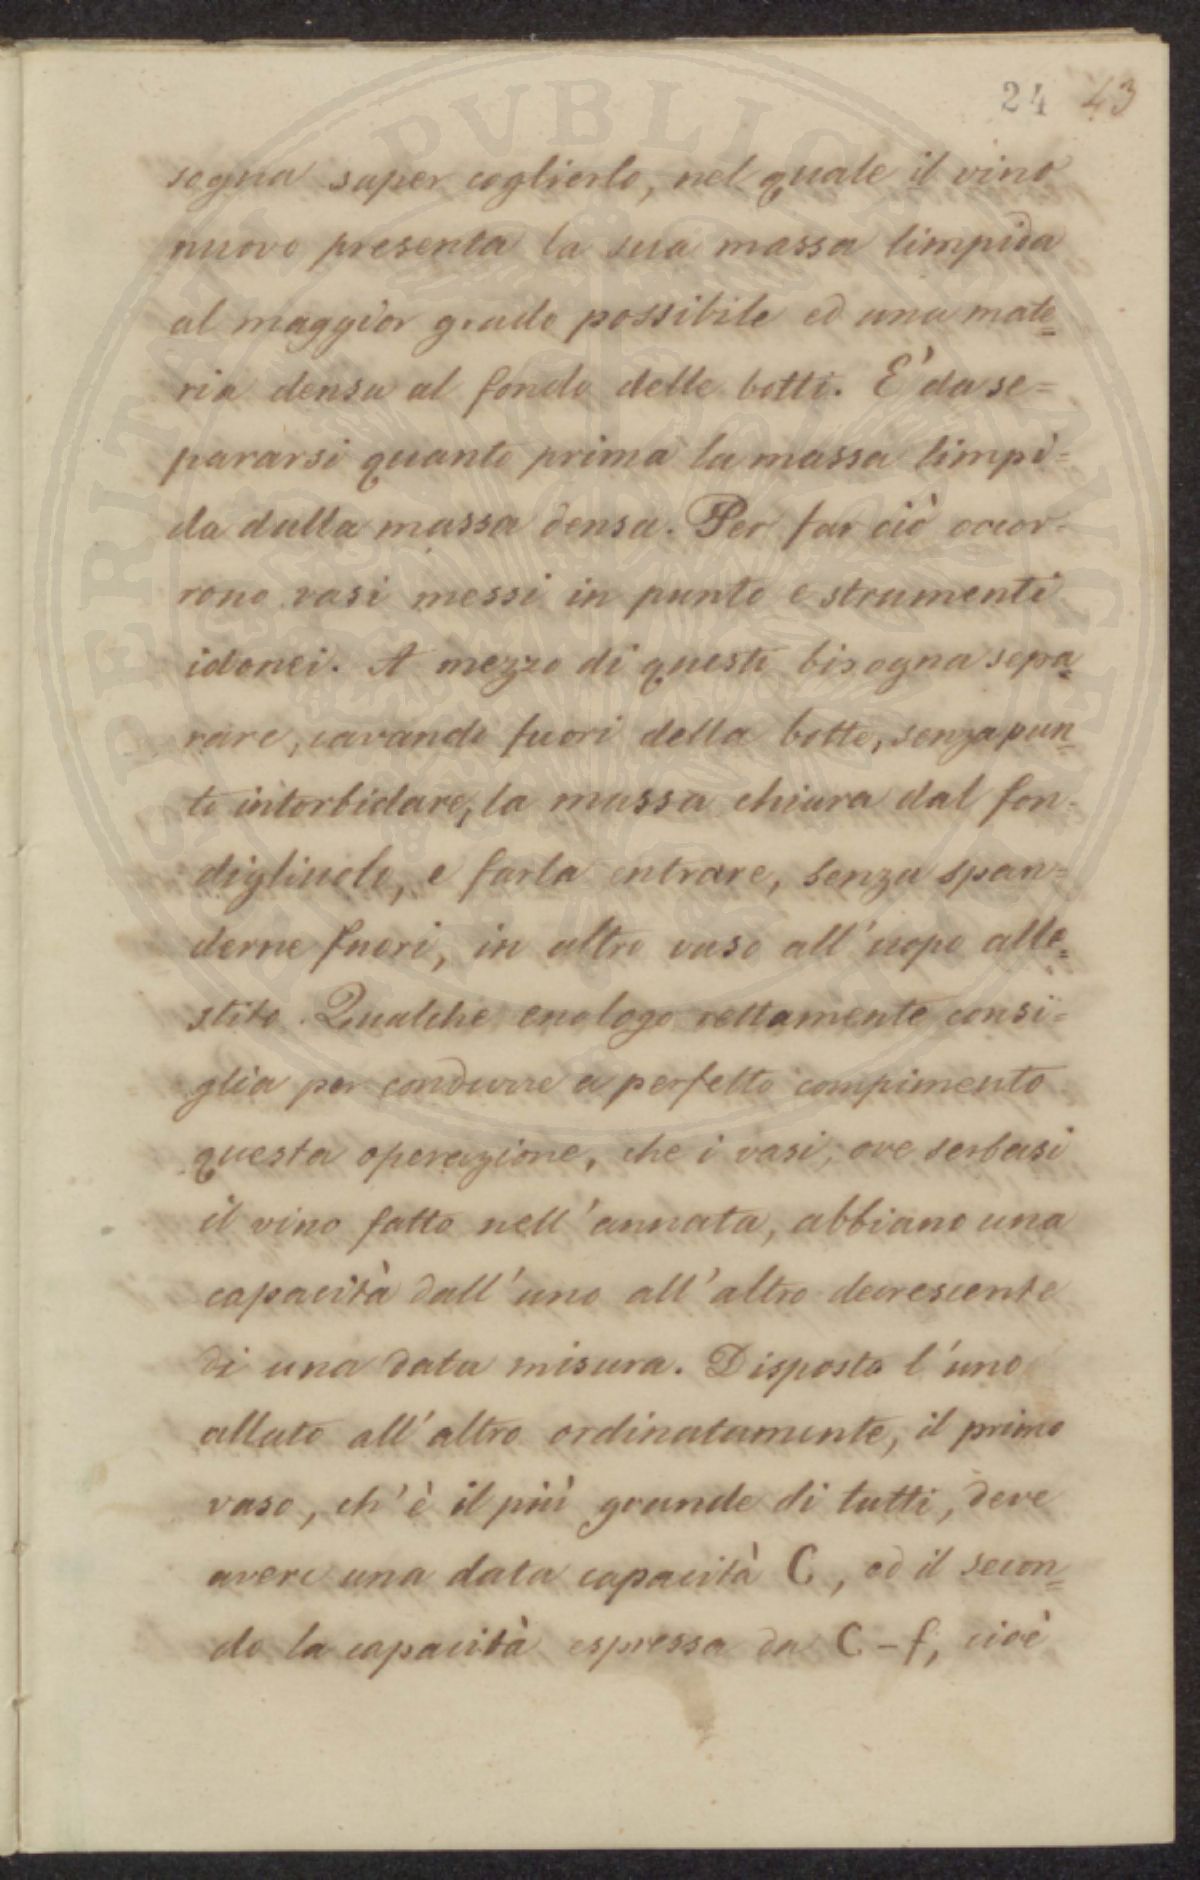 24 43
sogna saper coglierlo, nel quale il vino
nuovo presenta la sua massa limpida
al maggior grado possibile ed una mate=
ria densa al fondo delle botti. E' da se=
pararsi quanto prima la massa limpi=
da dalla massa densa. Per far ciò occor-
rono vasi messi in punto e strumenti
idonei. A mezzo di questi bisogna sepa=
rare, cavando fuori della botte, senza pun=
to intorbidare, la massa chiara dal fon-
digliuolo, e farla entrare, senza span=
derne fuori, in altro vaso all'uopo alle=
stito. Qualche enologo rettamente consi=
glia per condurre a perfetto compimento
questa operazione, che i vasi, ove serbasi
il vino fatto nell'annata, abbiano una
capacità dall'uno all'altro decrescente
di una data misura. Disposto l'uno
allato all'altro ordinatamente, il primo
vaso, ch'è il più grande di tutti, deve
avere una data capacità C, ed il secon=
do la capacità espressa da C-f, cioè